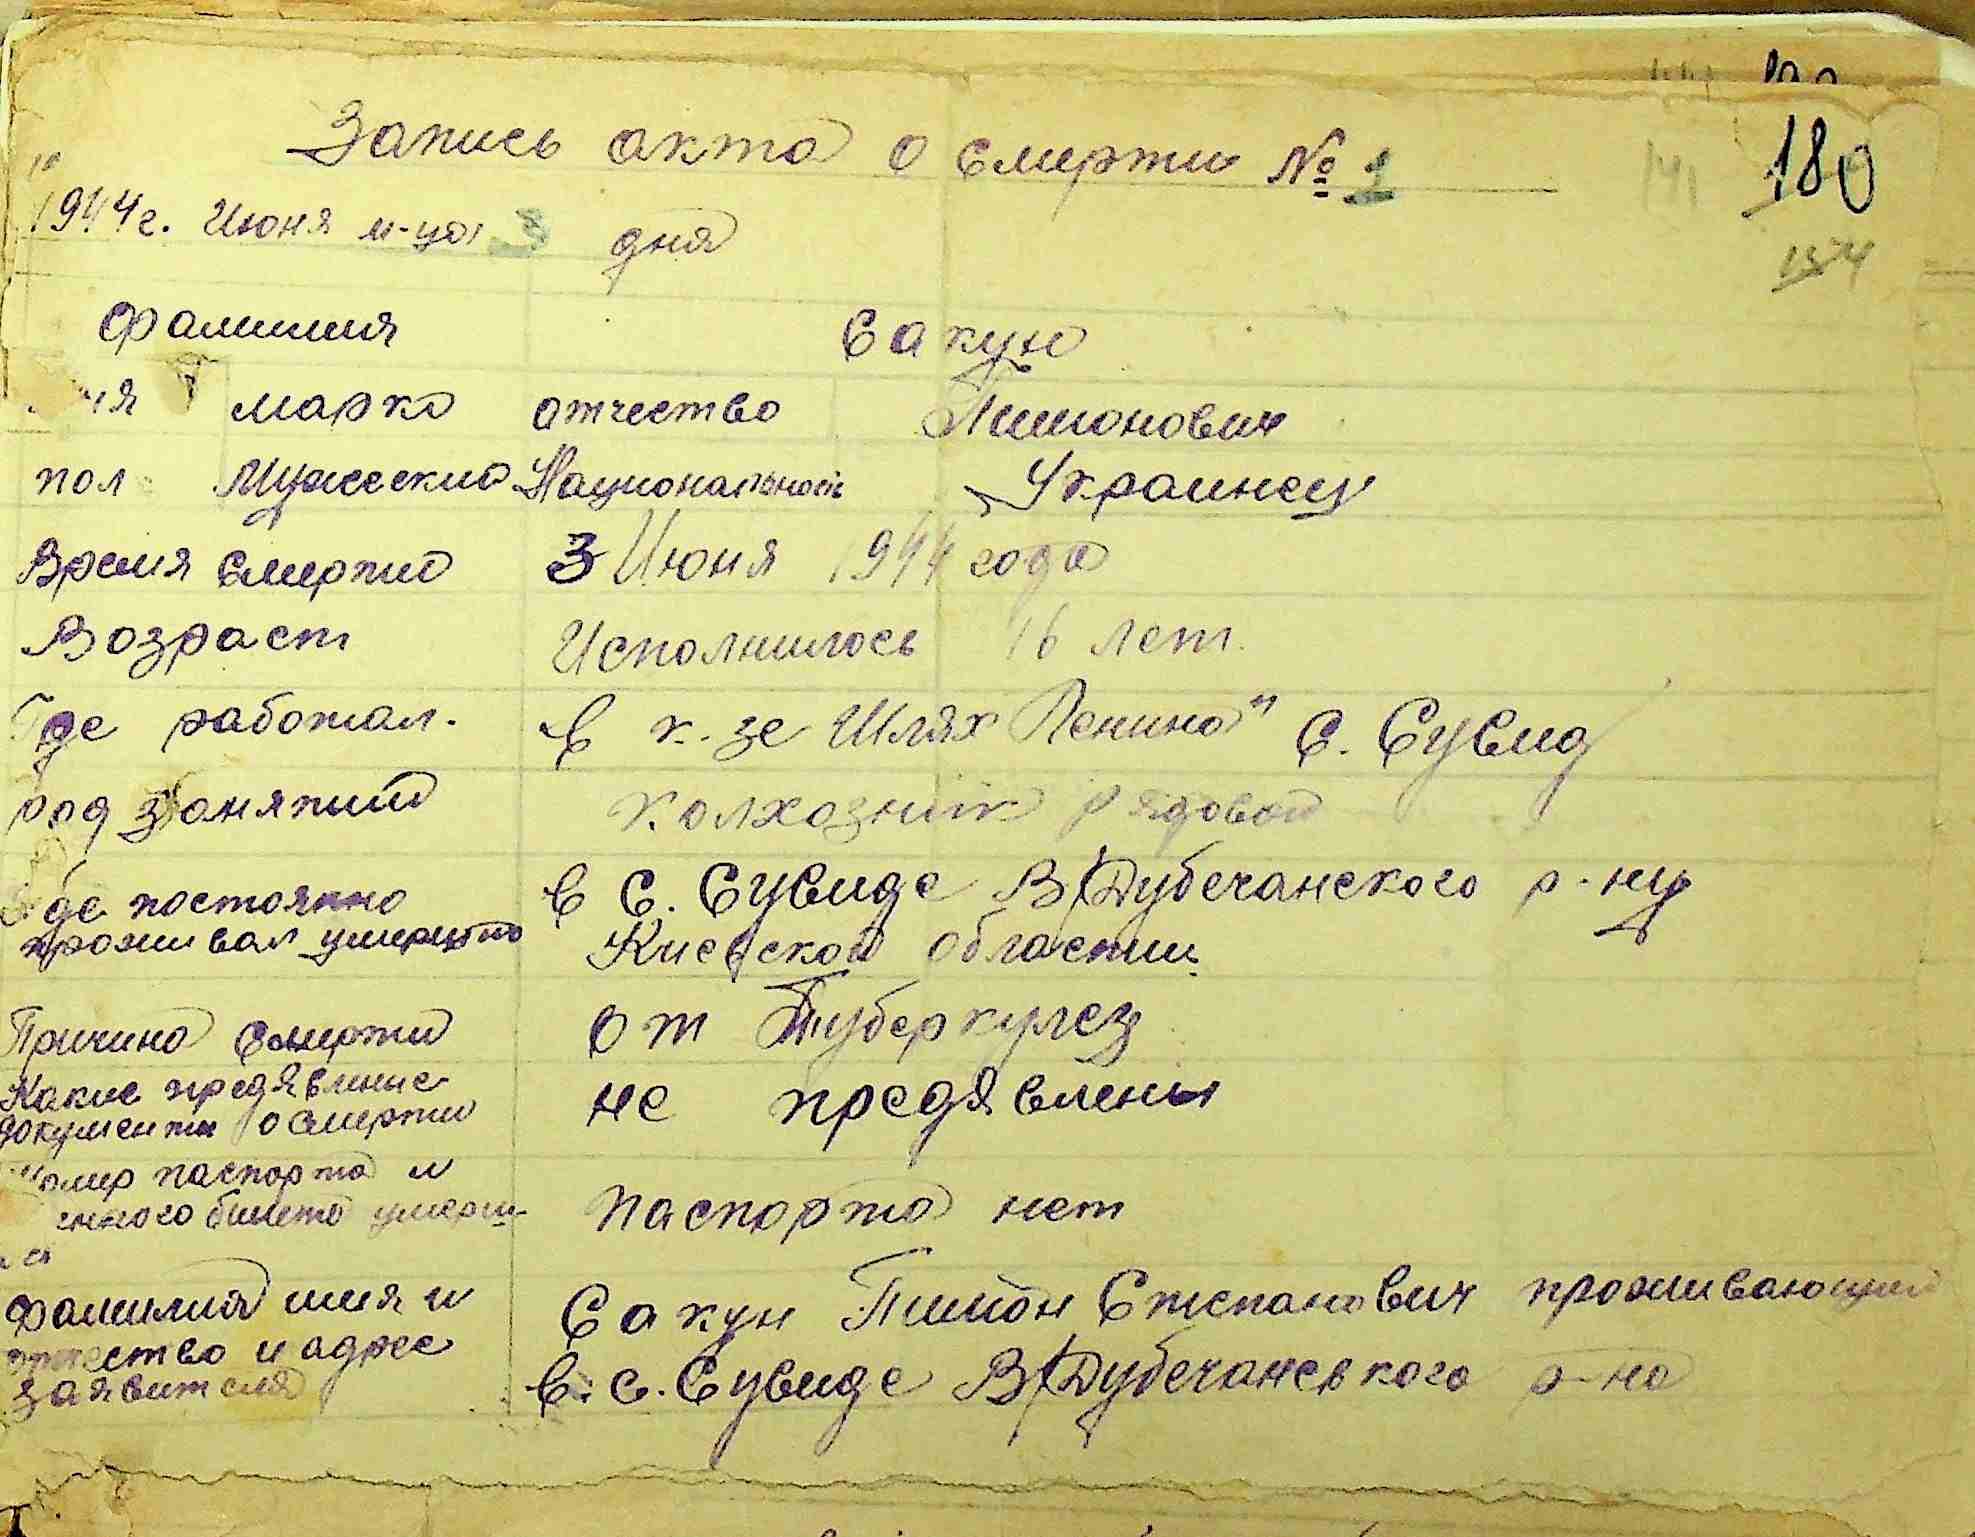 Запись акта о смерти № 1
180
1944 г. Июня м-ца 3 дня
154
141
фамилия Сакун
марко отчество Тимонович
пол Мужеский Национальность Украинец
Время смерти 3 Июня 1944 года
Возраст Исполнилось 16 лет.
Где работал. в к-зе Шлях Ленина" с. Сувид
род занятий колхозник рядовой
где постоянно в С. Сувиде В/Дубечанского р-ну
проживал умерший Киевской области.
Причина смерти от Туберкулез
Какие предявлены
документы о смерти не предявлены
паспорта и
билета умерш- паспорта нет
фамилия имя и Сакун Тимон Степанович проживающий
отчество и адрес
заявителя в. с. Сувиде В/Дубечанського р-на